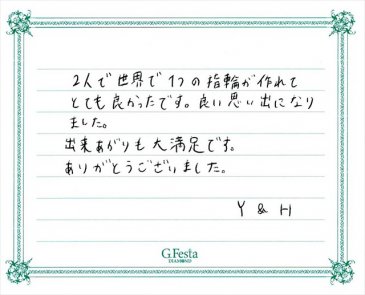 2人で世界で1つの指輪が作れて
とても良かったです。良い思い出になり
ました。
出来あがりも大満足です。
ありがとうございました。
Y & H
G.Festa
DIAMOND